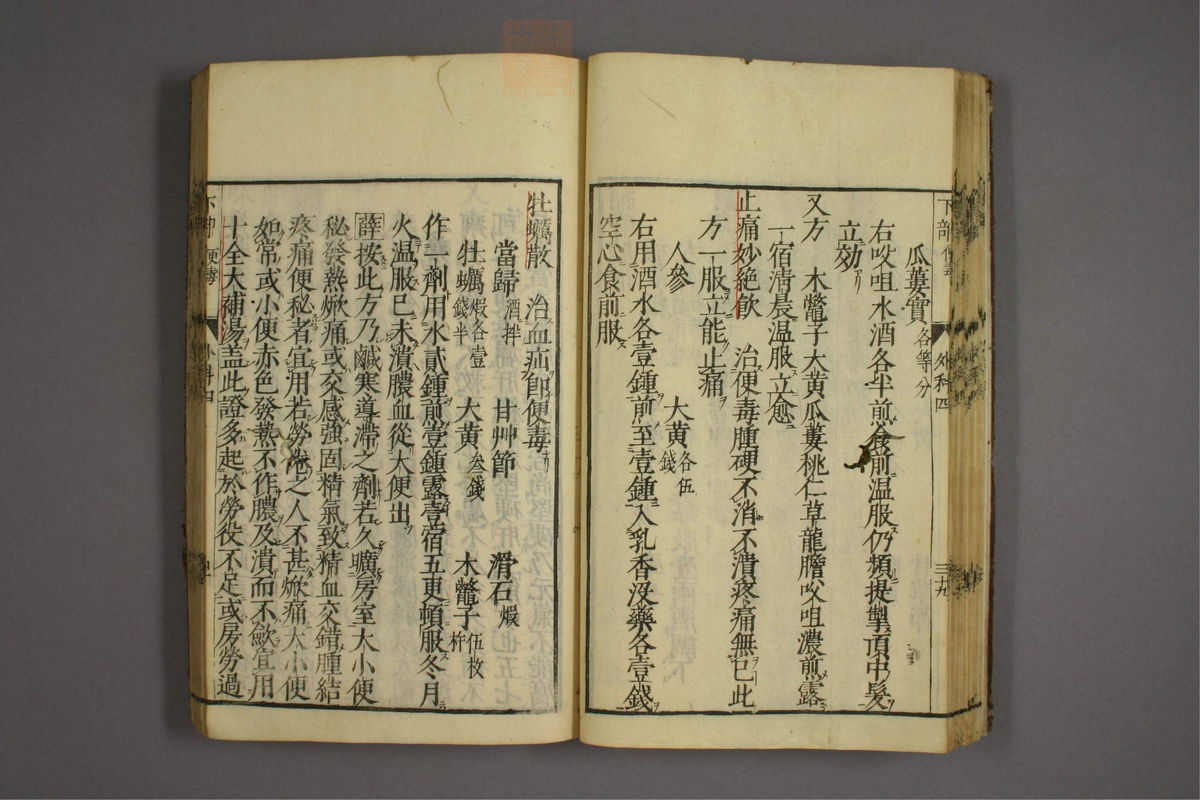 下部 便毒 外科四 三十九
瓜蔞實各等分
右㕮咀水酒各半煎食前温服仍頻提掣頂中髮
立効
又方 木鼈子大黄瓜蔞桃仁草龍膽㕮咀濃煎露
一宿清晨温服立愈
止痛妙絶飲 治便毒腫硬不消不潰疼痛無已此
方一服立能止痛
人參 大黄各伍錢
右用酒水各壹鍾煎至壹鍾入乳香没藥各壹錢
空心食前服
牡蠣散 治血疝即便毒
當歸酒拌 甘艸節 滑石煆
牡蠣煆各壹錢半 大黄叁錢 木鼈子伍枚杵
作一劑用水貳鍾煎壹鍾露壹宿五更頓服冬月
火温服已未潰膿血從大便出
薛按此方乃鹹寒導滯之劑若久曠房室大小便
秘發熱焮痛或交感強固精氣致精血交錯腫結
疼痛便秘者宜用若勞倦之人不甚焮痛大小便
如常或小便赤色發熱不作膿及潰而不歛宜用
十全大補湯盖此證多起於勞役不足或房勞過
下部 便毒 外科四